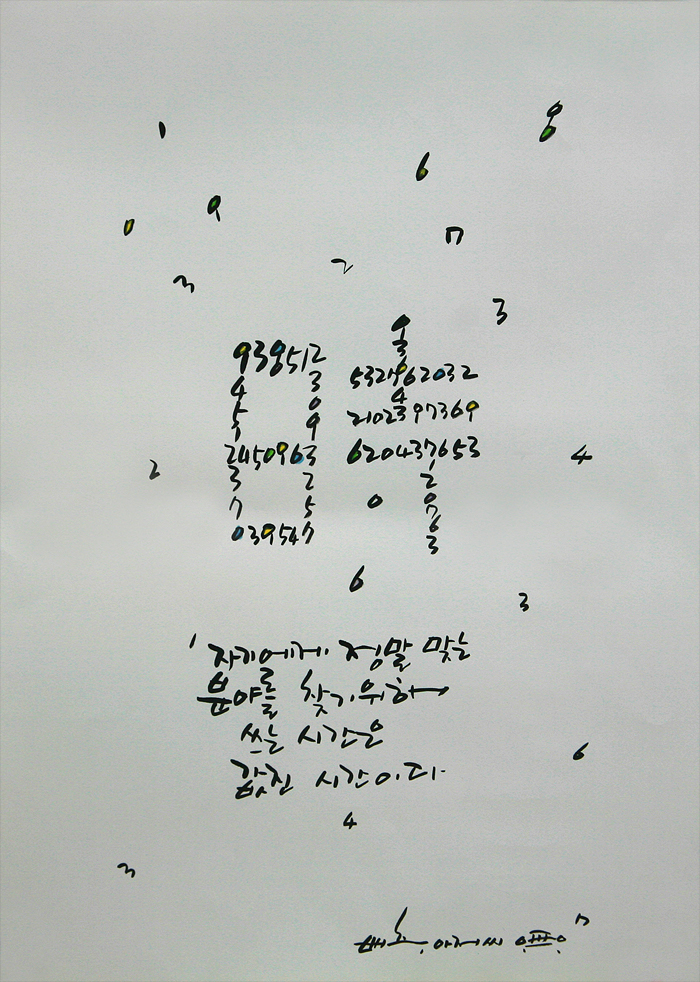 1
8
6
9
0
7
2
3
3
9
3
939512
4 3
532 962032
4
5 0
9
2102397369
2450963
620437653
4
2
3 2
2
7 5
0
0
7
039547
6
3
6
3
자기에게 정말 맞는
분야를 찾기위하여
쓰는 시간은
값진 시간이다.
6
4
3